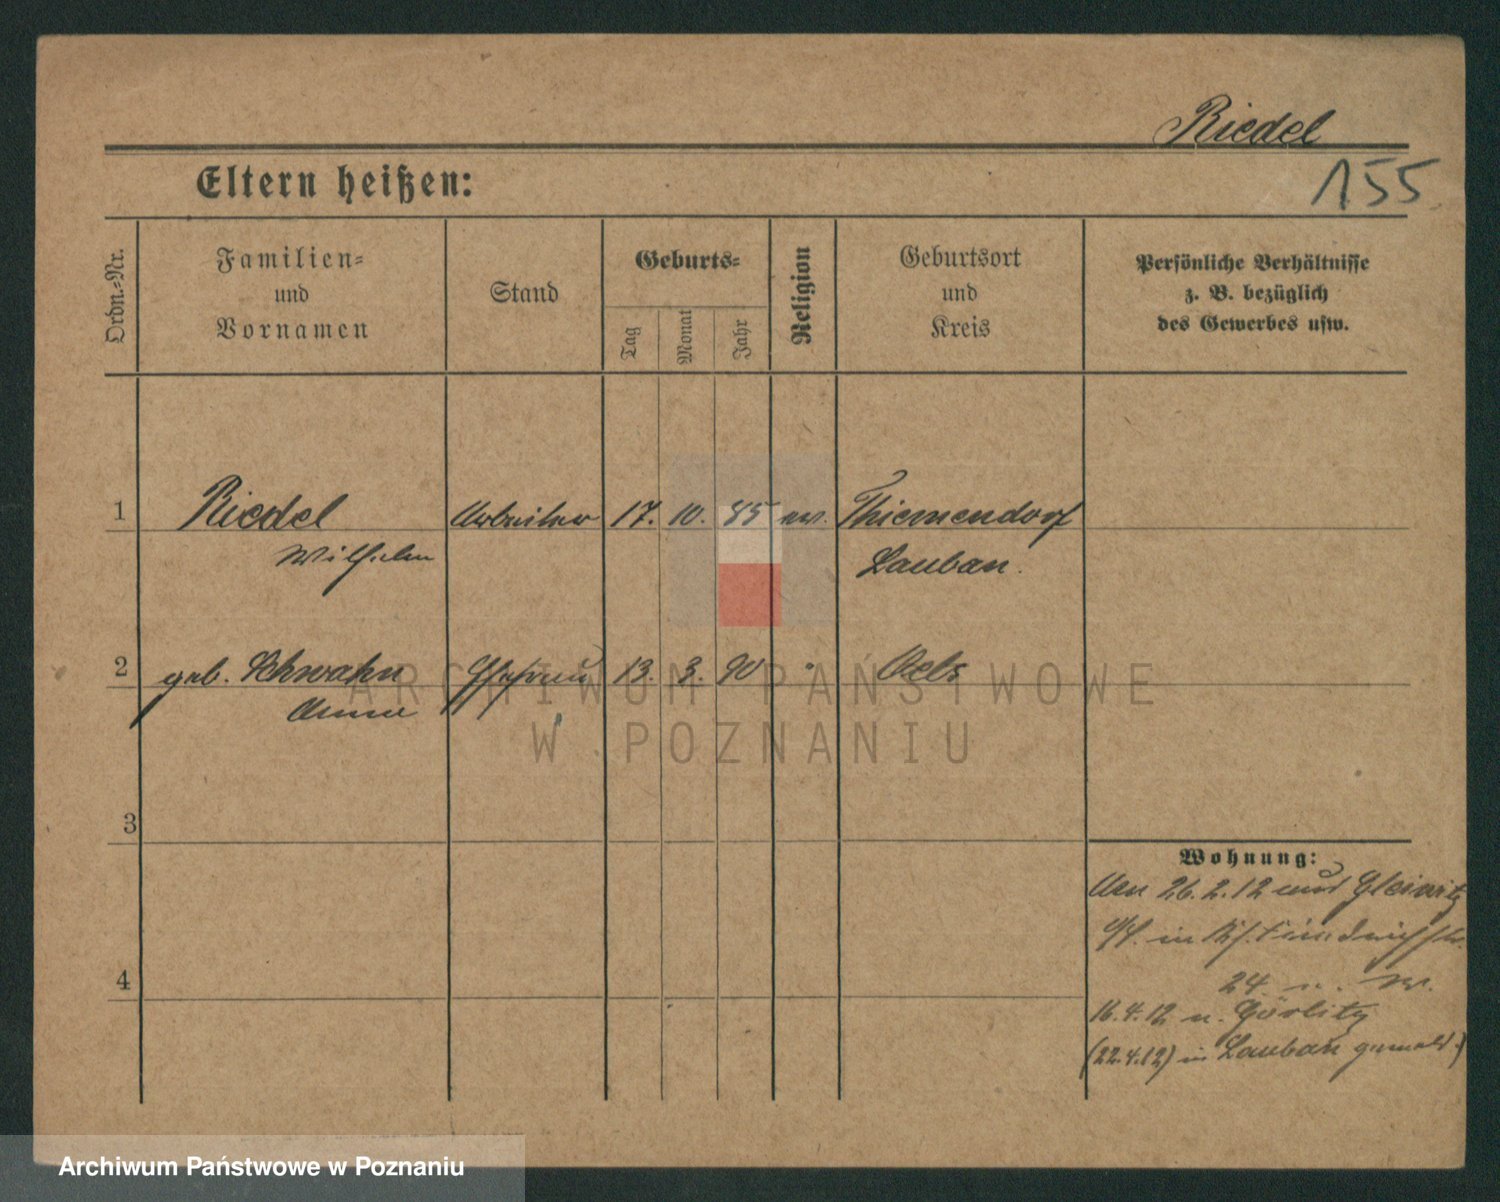 Riedel
155
Eltern heißen:
Ordn.-Nr.
Familien-
und
Vornamen
Stand
Geburts-
Tag
Monat
Jahr
Religion
Geburtsort
und
Kreis
Persönliche Verhältnisse
z. B. bezüglich
des Gewerbes usw.
1 Riedel Arbeiter 17. 10. 85 ev. Thiemendorf
Wilhelm Lauban.
2 geb. Schwahn Ehefrau 13. 3. 90 Oels
Anna
3
4
Wohnung:
26.2.12 Gleiwitz
in
24
16.4.12 n. Görlitz
(22.4.12) in Lauban gemeld.)
ARCHIWUM PAŃSTWOWE
W POZNANIU
Archiwum Państwowe w Poznaniu